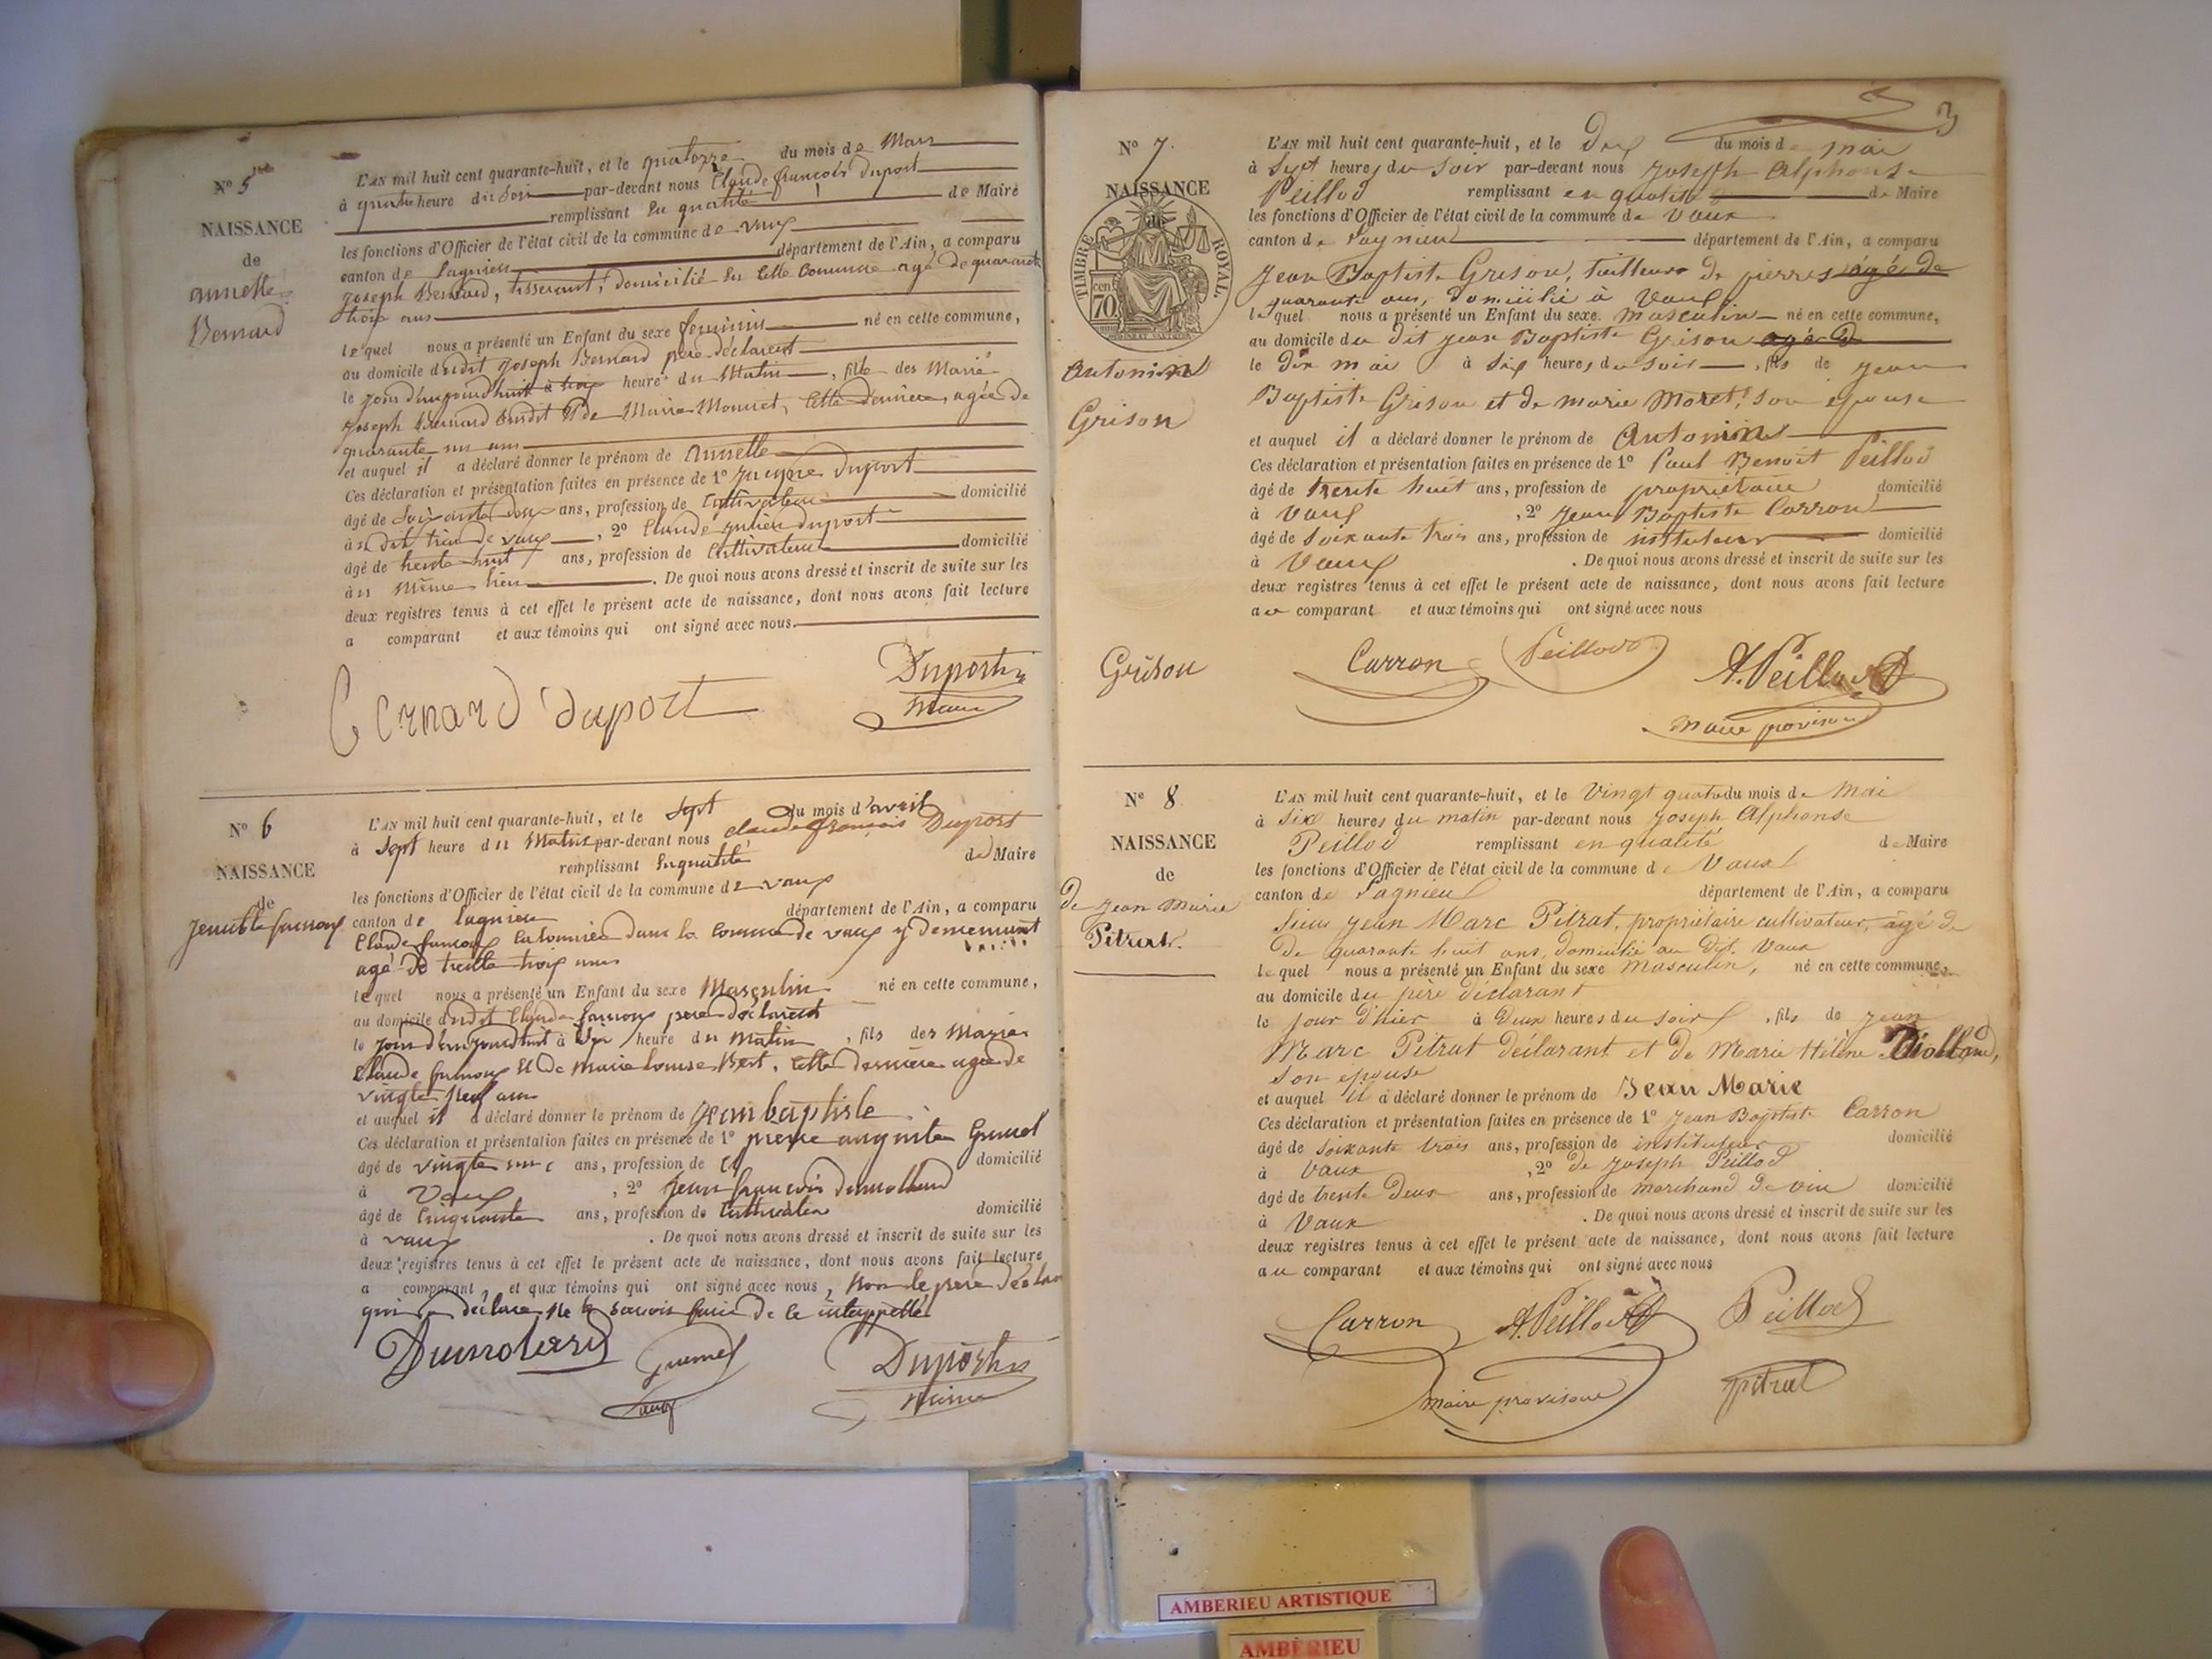 Nº 5
NAISSANCE
de
annette
Bernard
L'AN mil huit cent quarante-huit, et le quatorze du mois de Mars
à quatre heure du Soir par-devant nous Claude françois Duport
remplissant En qualité de Maire
les fonctions d'Officier de l'état civil de la commune de vaux
canton de Lagnieu département de l'Ain, a comparu
joseph Bernard, tisserant, domicilié En Cette Commune agé de quarante
trois ans
lequel nous a présenté un Enfant du sexe feminin né en cette commune,
au domicile dudit joseph Bernard père déclarent
le jour d'aujourdhuit à trois heure du Matin, fille des Mariés
joseph Bernard Susdit Et de Marie Monnet, Cette dernière agée de
quarante un ans
et auquel il a déclaré donner le prénom de annette
Ces déclaration et présentation faites en présence de 1º Duport
âgé de Soixante ans, profession de Cultivateur domicilié
à vaux, 2º Claude julien duport
âgé de trente huit ans, profession de Cultivateur domicilié
au Même lieu. De quoi nous avons dressé et inscrit de suite sur les
deux registres tenus à cet effet le présent acte de naissance, dont nous avons fait lecture
a comparant et aux témoins qui ont signé avec nous.
Bernard duport Duport
Maire
Nº 6
NAISSANCE
de
L'AN mil huit cent quarante-huit, et le Sept du mois d'avril
à Sept heure du Matin par-devant nous claude françois Duport
remplissant En qualité de Maire
les fonctions d'Officier de l'état civil de la commune de vaux
canton de lagnieu département de l'Ain, a comparu
Claude dans la Commune de vaux y demeurant
agé de trente trois ans
lequel nous a présenté un Enfant du sexe Masculin né en cette commune,
au domicile dudit Claude père déclarent
le jour d'aujourdhuit à Six heure du Matin, fils des Mariés
Claude Et de Marie Louise Bert, Cette dernière agée de
vingt neuf ans
et auquel il a déclaré donner le prénom de jean baptiste
Ces déclaration et présentation faites en présence de 1º pierre auguste
âgé de vingt ans, profession de domicilié
à Vaux, 2º jean françois dumollard
âgé de Cinquante ans, profession de Cultivateur domicilié
à vaux. De quoi nous avons dressé et inscrit de suite sur les
deux registres tenus à cet effet le présent acte de naissance, dont nous avons fait lecture
a comparant, et aux témoins qui ont signé avec nous, Non le père
qui a déclaré ne le Savoir faire de ce interpellé
Dumolard Duport
Maire
3
Nº 7.
NAISSANCE
TIMBRE ROYAL.
70 cen
Antonin
Grison
L'AN mil huit cent quarante-huit, et le Dix du mois de mai
à Sept heures du Soir par-devant nous Joseph Alphonse
Peillod remplissant en qualité de Maire
les fonctions d'Officier de l'état civil de la commune de Vaux
canton de Lagnieu département de l'Ain, a comparu
Jean Baptiste Grison, tailleur de pierres âgé de
quarante ans, domicilié à Vaux
lequel nous a présenté un Enfant du sexe masculin né en cette commune,
au domicile du dit jean Baptiste Grison agé d
le dix mai à six heures du soir, fils de jean
Baptiste Grison et de marie Moret, son épouse
et auquel il a déclaré donner le prénom de Antonin
Ces déclaration et présentation faites en présence de 1º Paul Benoit Peillod
âgé de trente huit ans, profession de propriétaire domicilié
à Vaux, 2º Jean Baptiste Carron
âgé de Soixante trois ans, profession de instituteur domicilié
à Vaux. De quoi nous avons dressé et inscrit de suite sur les
deux registres tenus à cet effet le présent acte de naissance, dont nous avons fait lecture
au comparant et aux témoins qui ont signé avec nous
Grison Carron Peillod A. Peillod
maire provisoire
Nº 8
NAISSANCE
de
De Jean Marie
Pitrat.
L'AN mil huit cent quarante-huit, et le Vingt quatre du mois de Mai
à Six heures du matin par-devant nous Joseph Alphonse
Peillod remplissant en qualité de Maire
les fonctions d'Officier de l'état civil de la commune de Vaux
canton de Lagnieu département de l'Ain, a comparu
Sieur Jean Marc Pitrat, propriétaire cultivateur, âgé de
de quarante huit ans, domicilié au dit Vaux
lequel nous a présenté un Enfant du sexe Masculin, né en cette commune,
au domicile du père déclarant
le jour d'hier à Deux heures du soir, fils de Jean
Marc Pitrat déclarant et de Marie Hélène
son épouse
et auquel il a déclaré donner le prénom de Jean Marie
Ces déclaration et présentation faites en présence de 1º Jean Baptiste Carron
âgé de soixante trois ans, profession de instituteur domicilié
à Vaux, 2º de Joseph Peillod
âgé de trente Deux ans, profession de marchand de vin domicilié
à Vaux. De quoi nous avons dressé et inscrit de suite sur les
deux registres tenus à cet effet le présent acte de naissance, dont nous avons fait lecture
au comparant et aux témoins qui ont signé avec nous
Carron A. Peillod Peillod
maire provisoire pitrat
AMBERIEU ARTISTIQUE
AMBÉRIEU